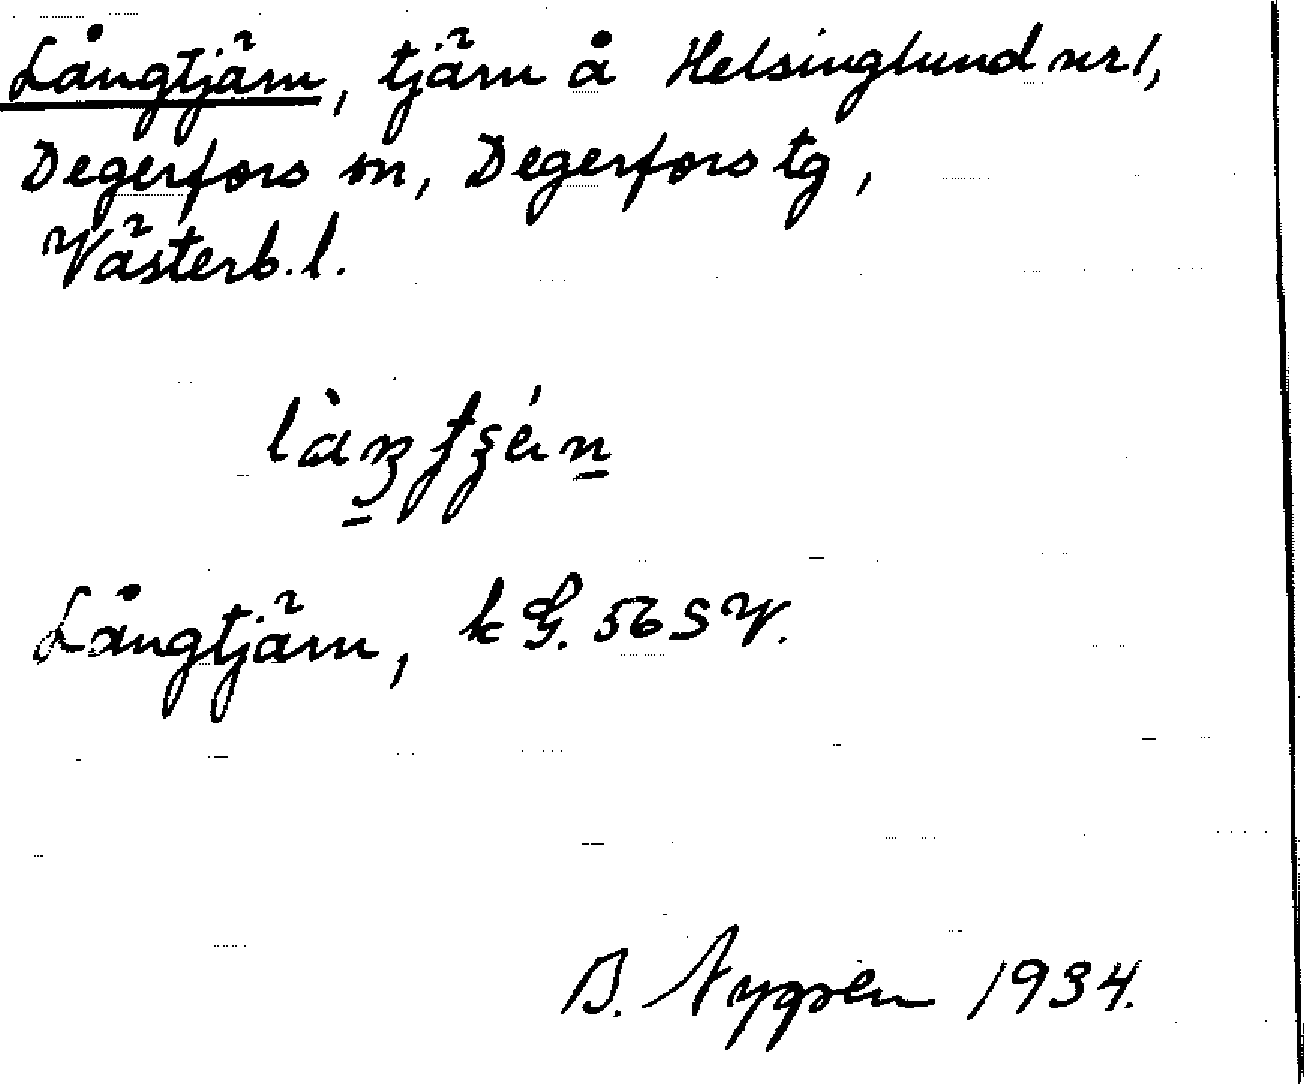 Långtjärn, tjärn å Helsinglund nr 1,
Degerfors sn, Degerfors tg,
Västerb. l.
Långtjärn, k G. 56 SV.
B. Nygren 1934.